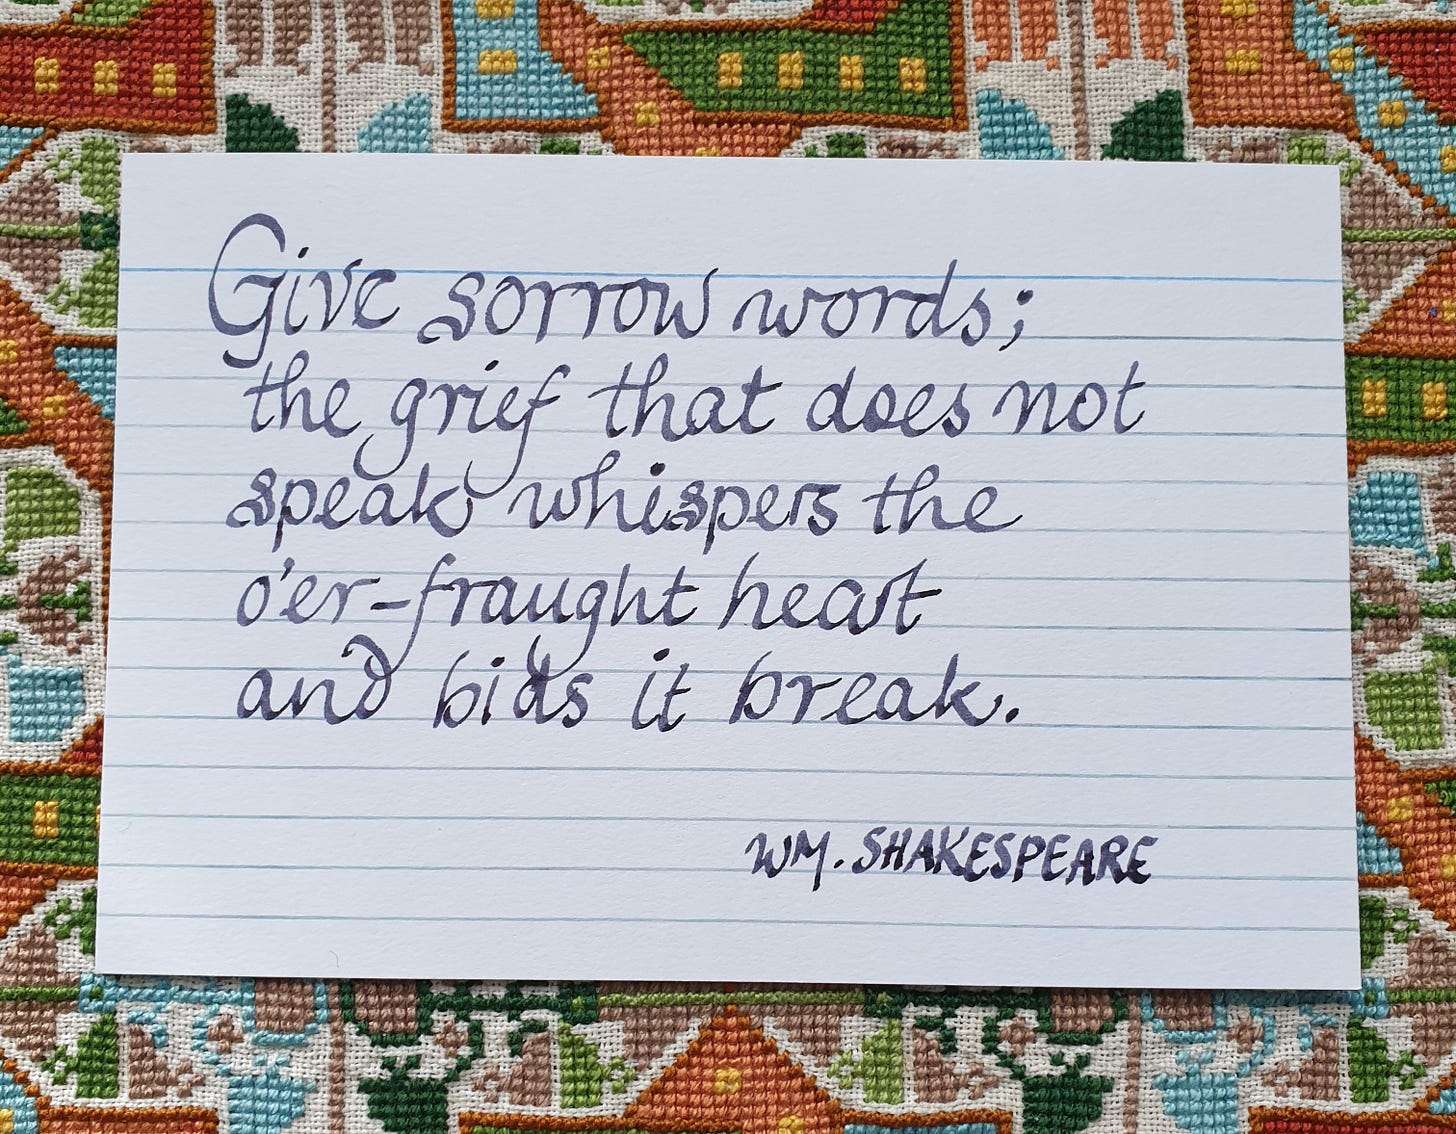 Give sorrow words;
the grief that does not
speak whispers the
o'er-fraught heart
and bids it break.
WM. SHAKESPEARE